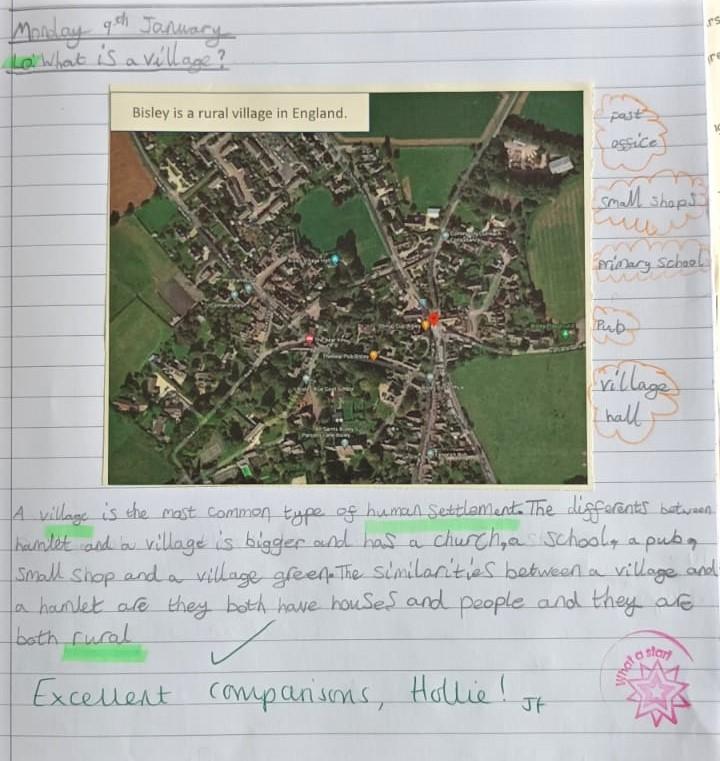 Monday 9th January
Lo: What is a village?
Bisley is a rural village in England.
post
office
small shops
primary School
Pub
village
hall
A village is the most common type of human settlement. The differents between
hamlet and a village is bigger and has a church, a school, a pub,
small shop and a village green. The similarities between a village and
a hamlet are they both have houses and people and they are
both rural
Excellent comparisons, Hollie! Jf
What a star!